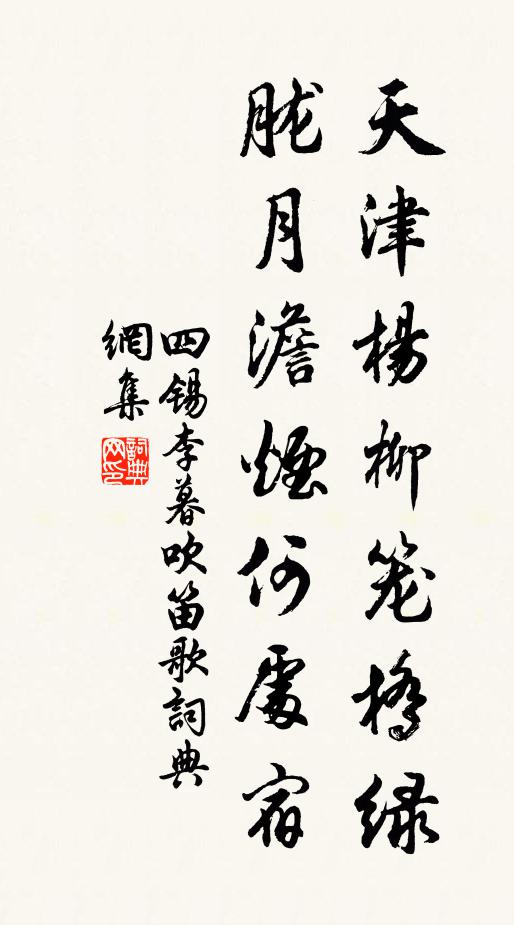 天津楊柳笼橋绿
胧月澹煙何處宿
四锡李暮吹笛歌詞典
網集
詞典网印